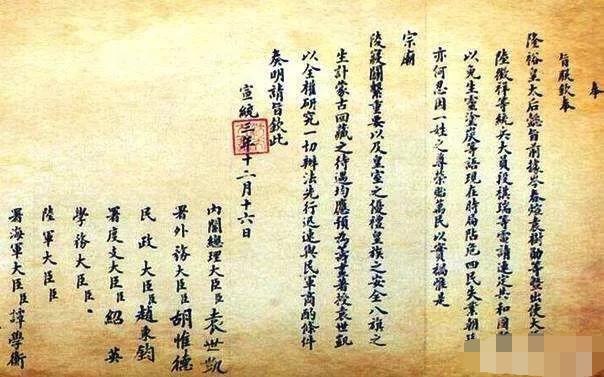 奉
旨朕欽奉
隆裕皇太后懿旨前據岑春煊袁樹勛等暨出使大
陸徵祥等統兵大員段祺瑞等電請速定共和國
以免生靈塗炭等語現在時局阽危四民失業朝
亦何忍因一姓之尊榮貽萬民以實禍惟是
宗廟
陵寢關繫重要以及皇室之優禮皇族之安全八旗之
生計蒙古回藏之待遇均應預為籌畫著授袁世凱
以全權研究一切辦法先行迅速與民軍商酌條件
奏明請旨欽此
宣統三年十二月十六日
內閣總理大臣臣袁世凱
署外務大臣臣胡惟德
民政大臣臣趙秉鈞
署度支大臣臣紹英
學務大臣臣
陸軍大臣臣
署海軍大臣臣譚學衡